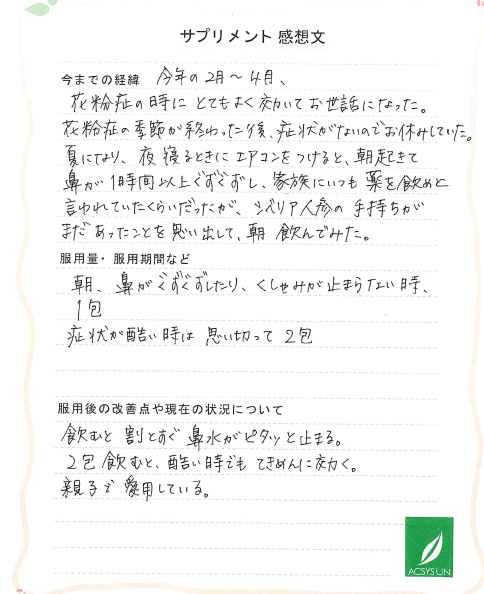 サプリメント 感想文
今までの経緯 今年の2月〜4月、
花粉症の時に とてもよく効いて お世話になった。
花粉症の季節が終わった後、症状がないのでお休みしていた。
夏になり、夜寝るときに エアコンをつけると、朝起きて
鼻が 1時間以上ぐずぐずし、家族にいつも 薬を飲めと
言われていたくらいだったが、シベリア人参の 手持ちが
まだあったことを思い出して、朝 飲んでみた。
服用量・服用期間など
朝、鼻がぐずぐずしたり、くしゃみが止まらない時、
1包
症状が酷い時は 思い切って 2包
服用後の改善点や現在の状況について
飲むと 割とすぐ 鼻水がピタッと止まる。
2包 飲むと、酷い時でも てきめんに効く。
親子で 愛用している。
ACSYS UN